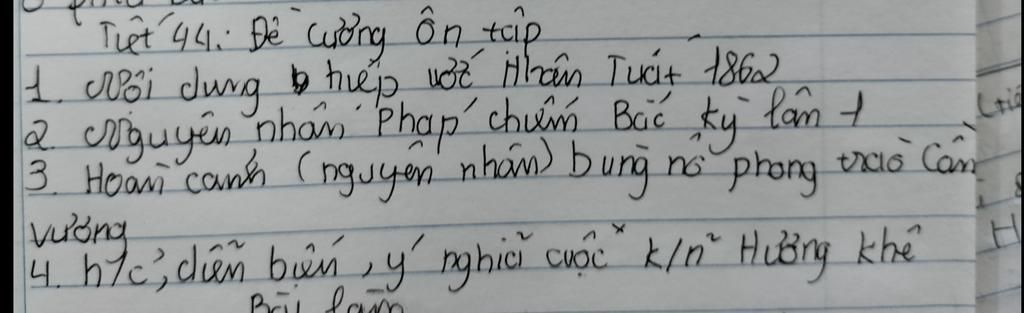 Tiết 44: Đề cương ôn tập
1. Nội dung hiệp ước Nhâm Tuất 1862
2. Nguyên nhân Pháp chiếm Bắc kỳ lần 1
3. Hoàn cảnh (nguyên nhân) bùng nổ phong trào Cần
vương
4. h/c, diễn biến, ý nghĩa cuộc k/n² Hương khê
Bài làm